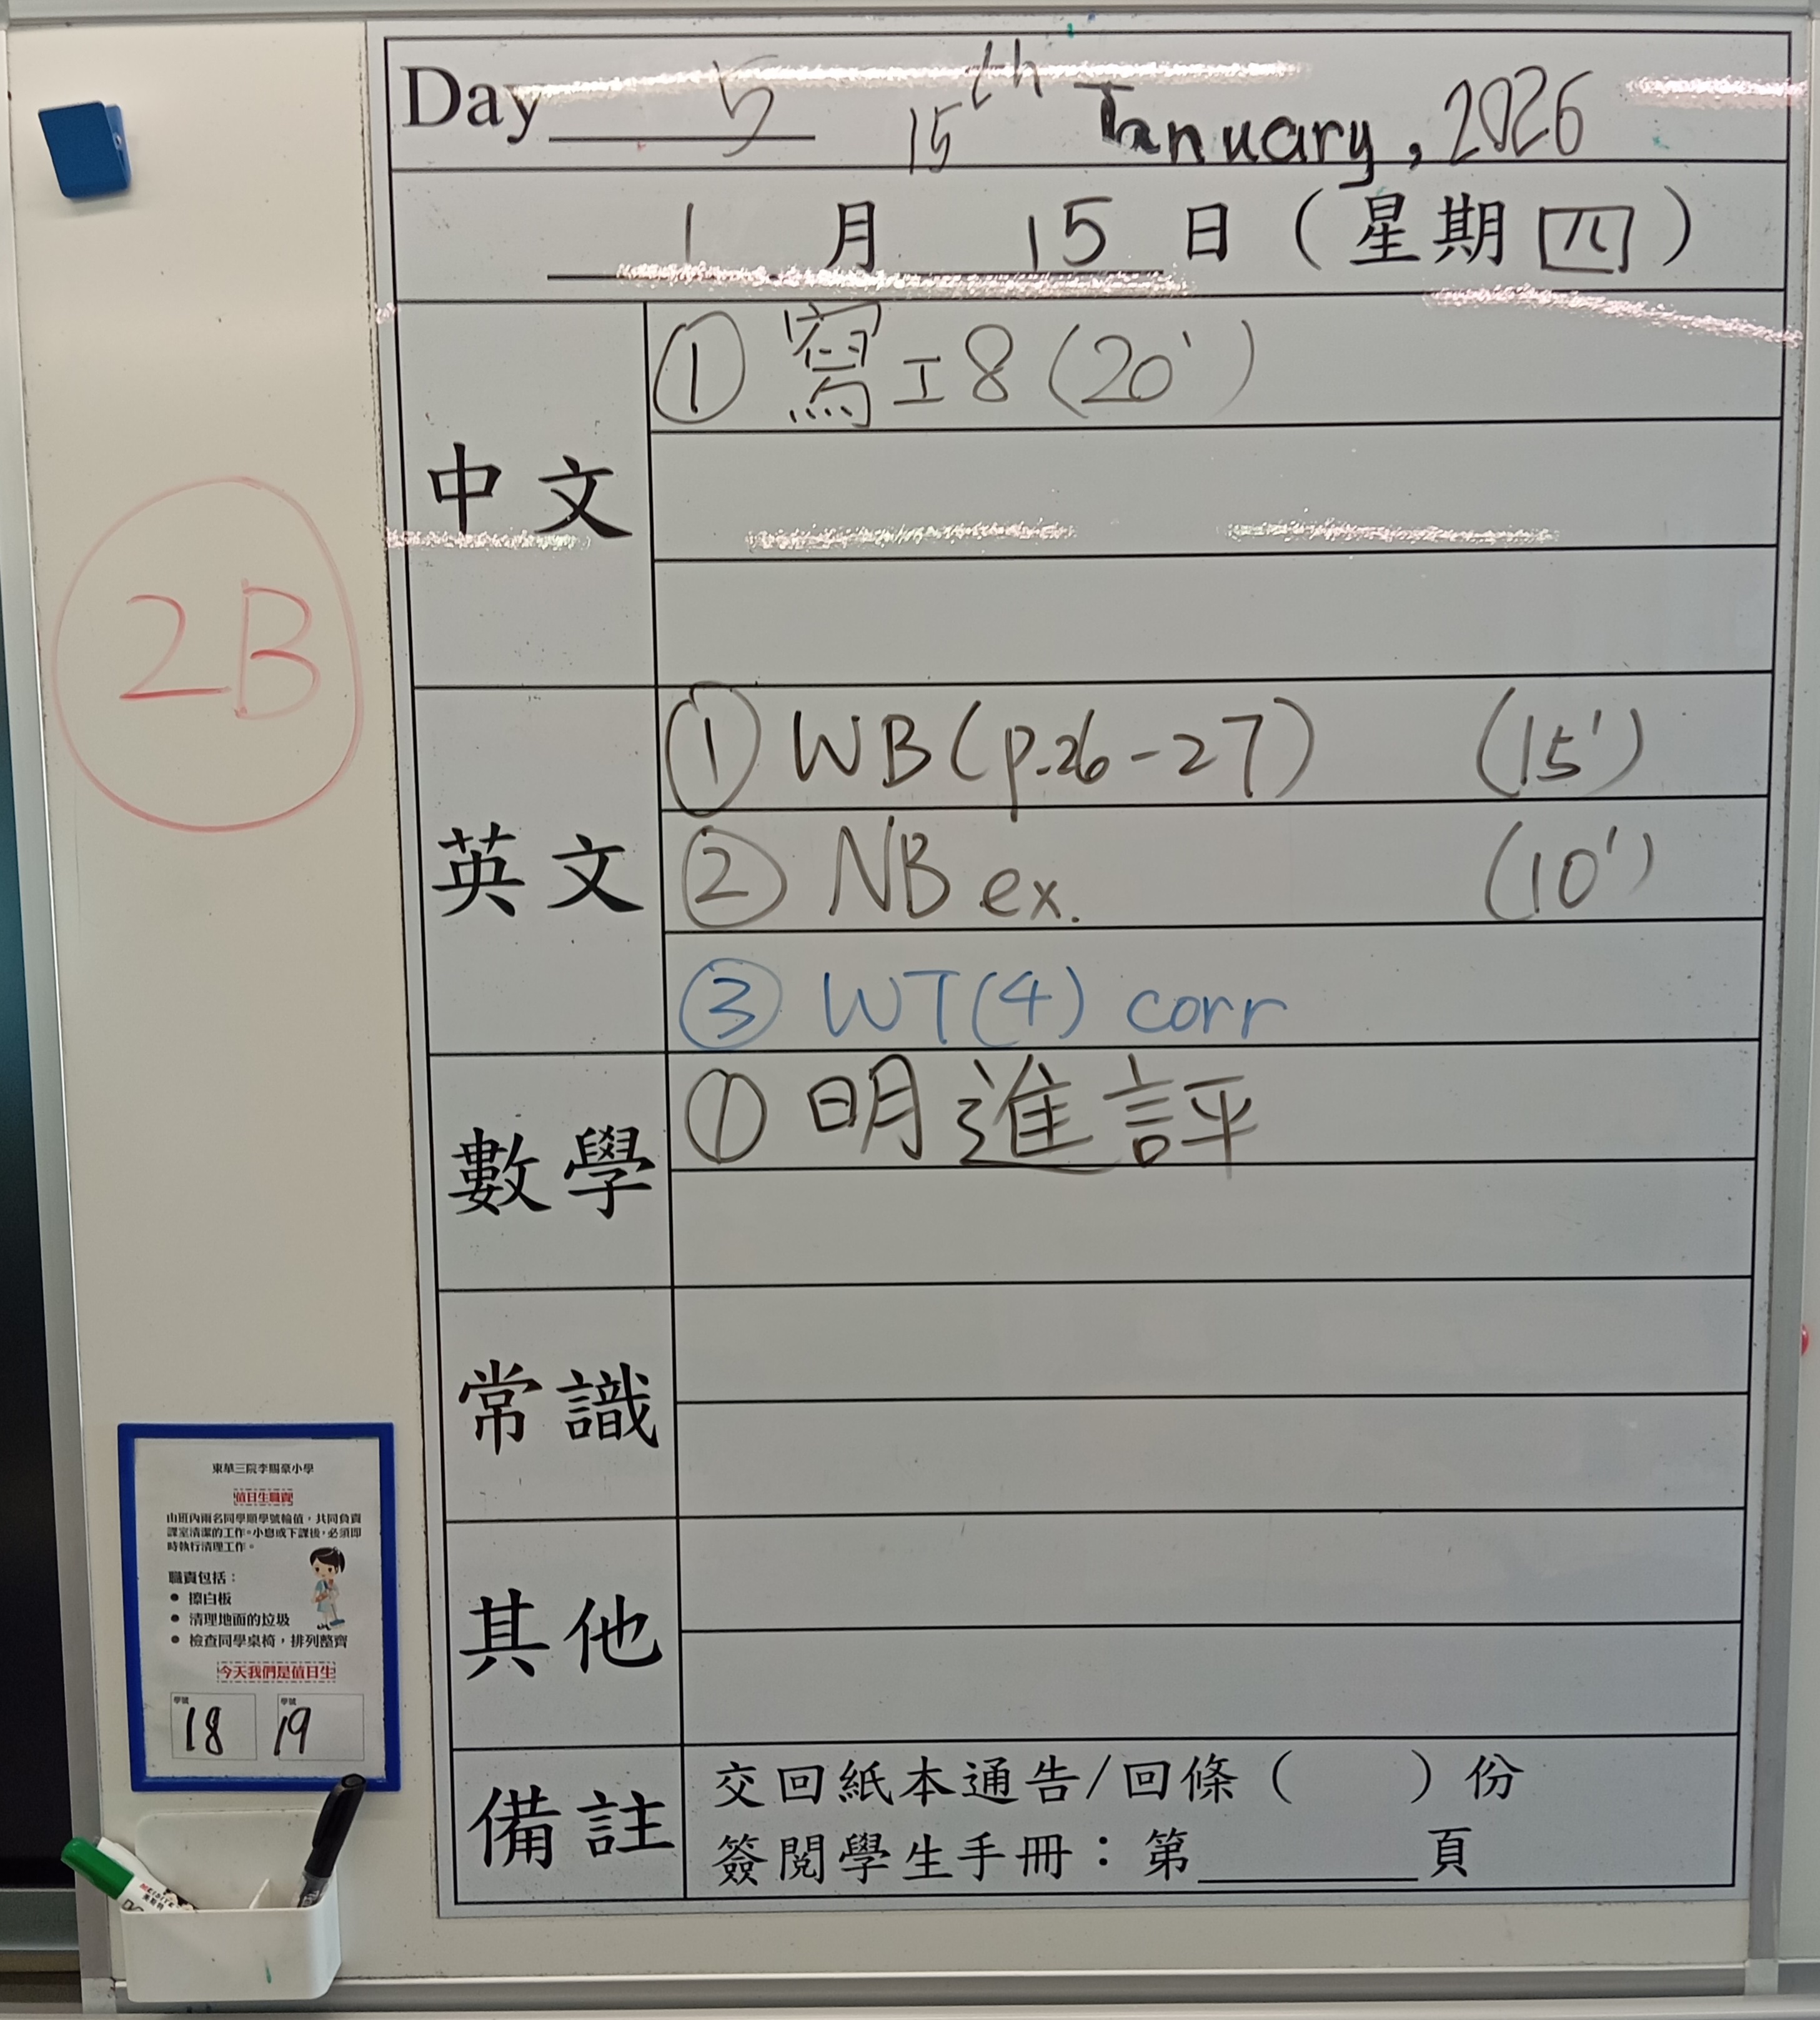 Day 5 15th January, 2026
1 月 15 日 (星期四)
中文
① 寫工8 (20')
英文
① WB (p.26-27) (15')
② NB ex. (10')
③ WT(4) corr
數學
① 明進評
常識
其他
備註
交回紙本通告/回條 ( ) 份
簽閱學生手冊：第______頁
2B
東華三院李賜豪小學
值日生職責
由班內兩名同學順學號輪值，共同負責
課室清潔的工作。小息或下課後，必須即
時執行清理工作。
職責包括：
• 擦白板
• 清理地面的垃圾
• 檢查同學桌椅，排列整齊
今天我們是值日生
學號 學號
18 19